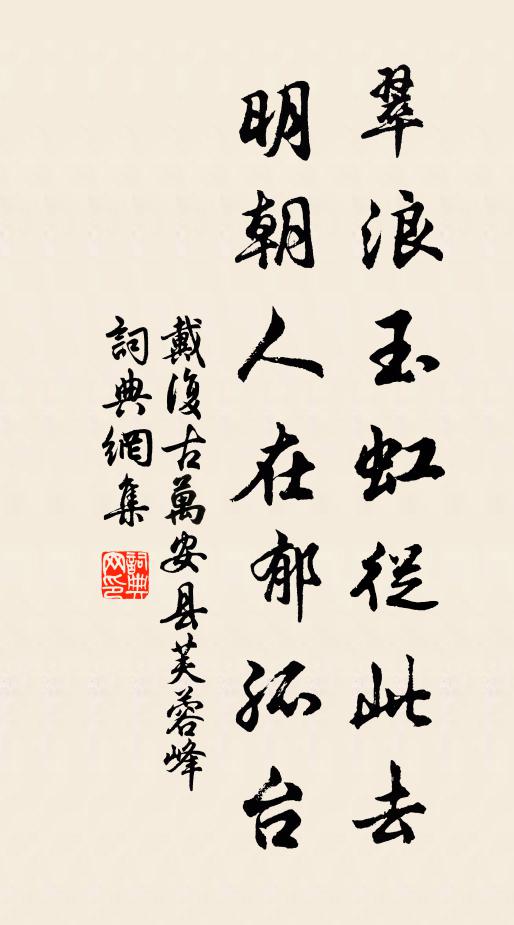 翠浪玉虹從此去
明朝人在郁孤台
戴復古萬安县芙蓉峰
詞典網集
詞典網印